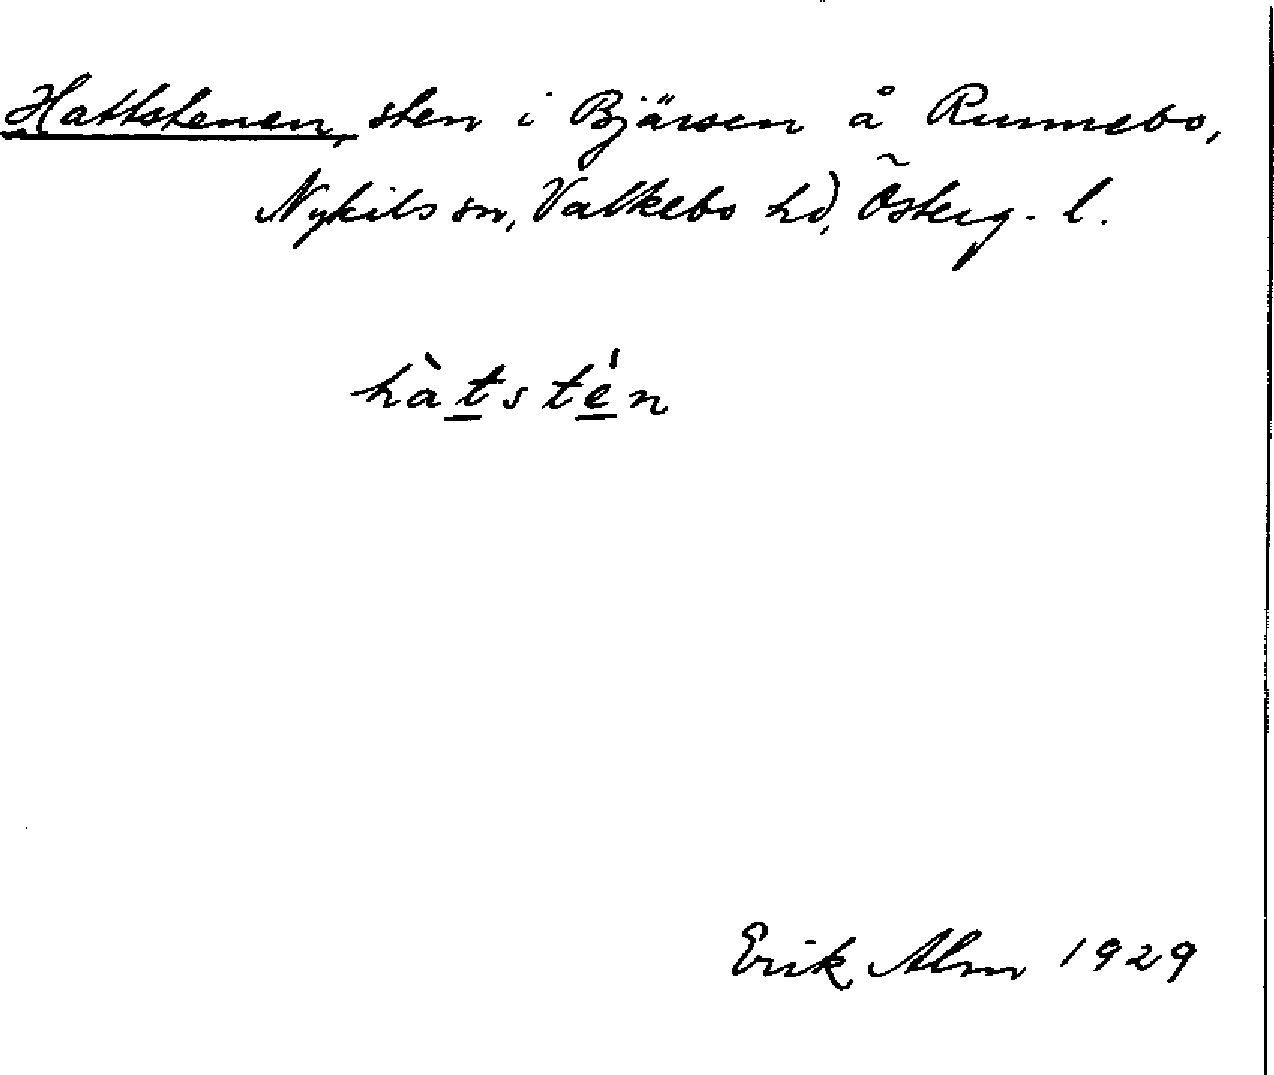 Hattstenen, sten i Bjärsen å Runnebo,
Nykils sn, Valkebo hd, Österg. l.
hàtstén
Erik Alm 1929